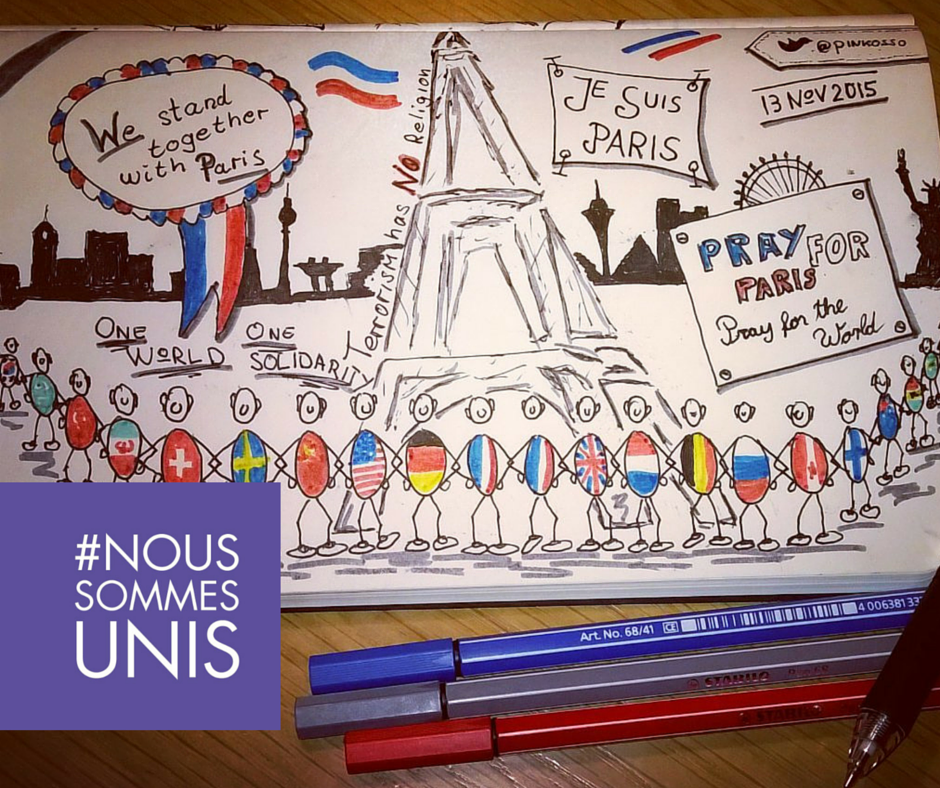 @PINKOSSO
13 NOV 2015
We stand
together
with Paris
JE SUIS
PARIS
Terrorism has NO Religion
PRAY FOR
PARIS
Pray for the
World
ONE
WORLD
ONE
SOLIDARITY
#NOUS
SOMMES
UNIS
Art. No. 68/41 CE 4 0063813
STABILO
STABILO